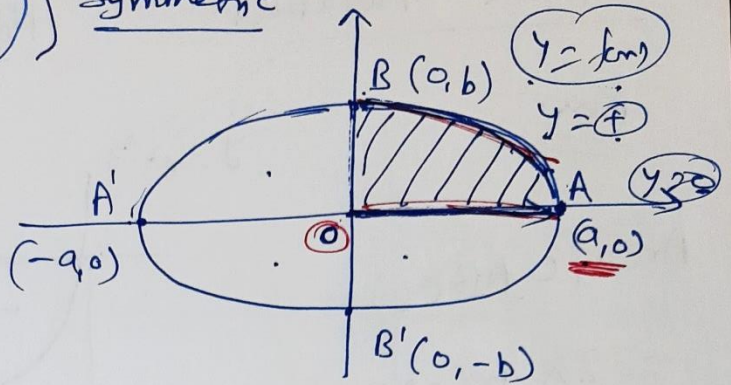 symmetric
B (0,b)
y =
y = +
A'
A
y = 0
O
(-a,0)
(a,0)
B' (0,-b)